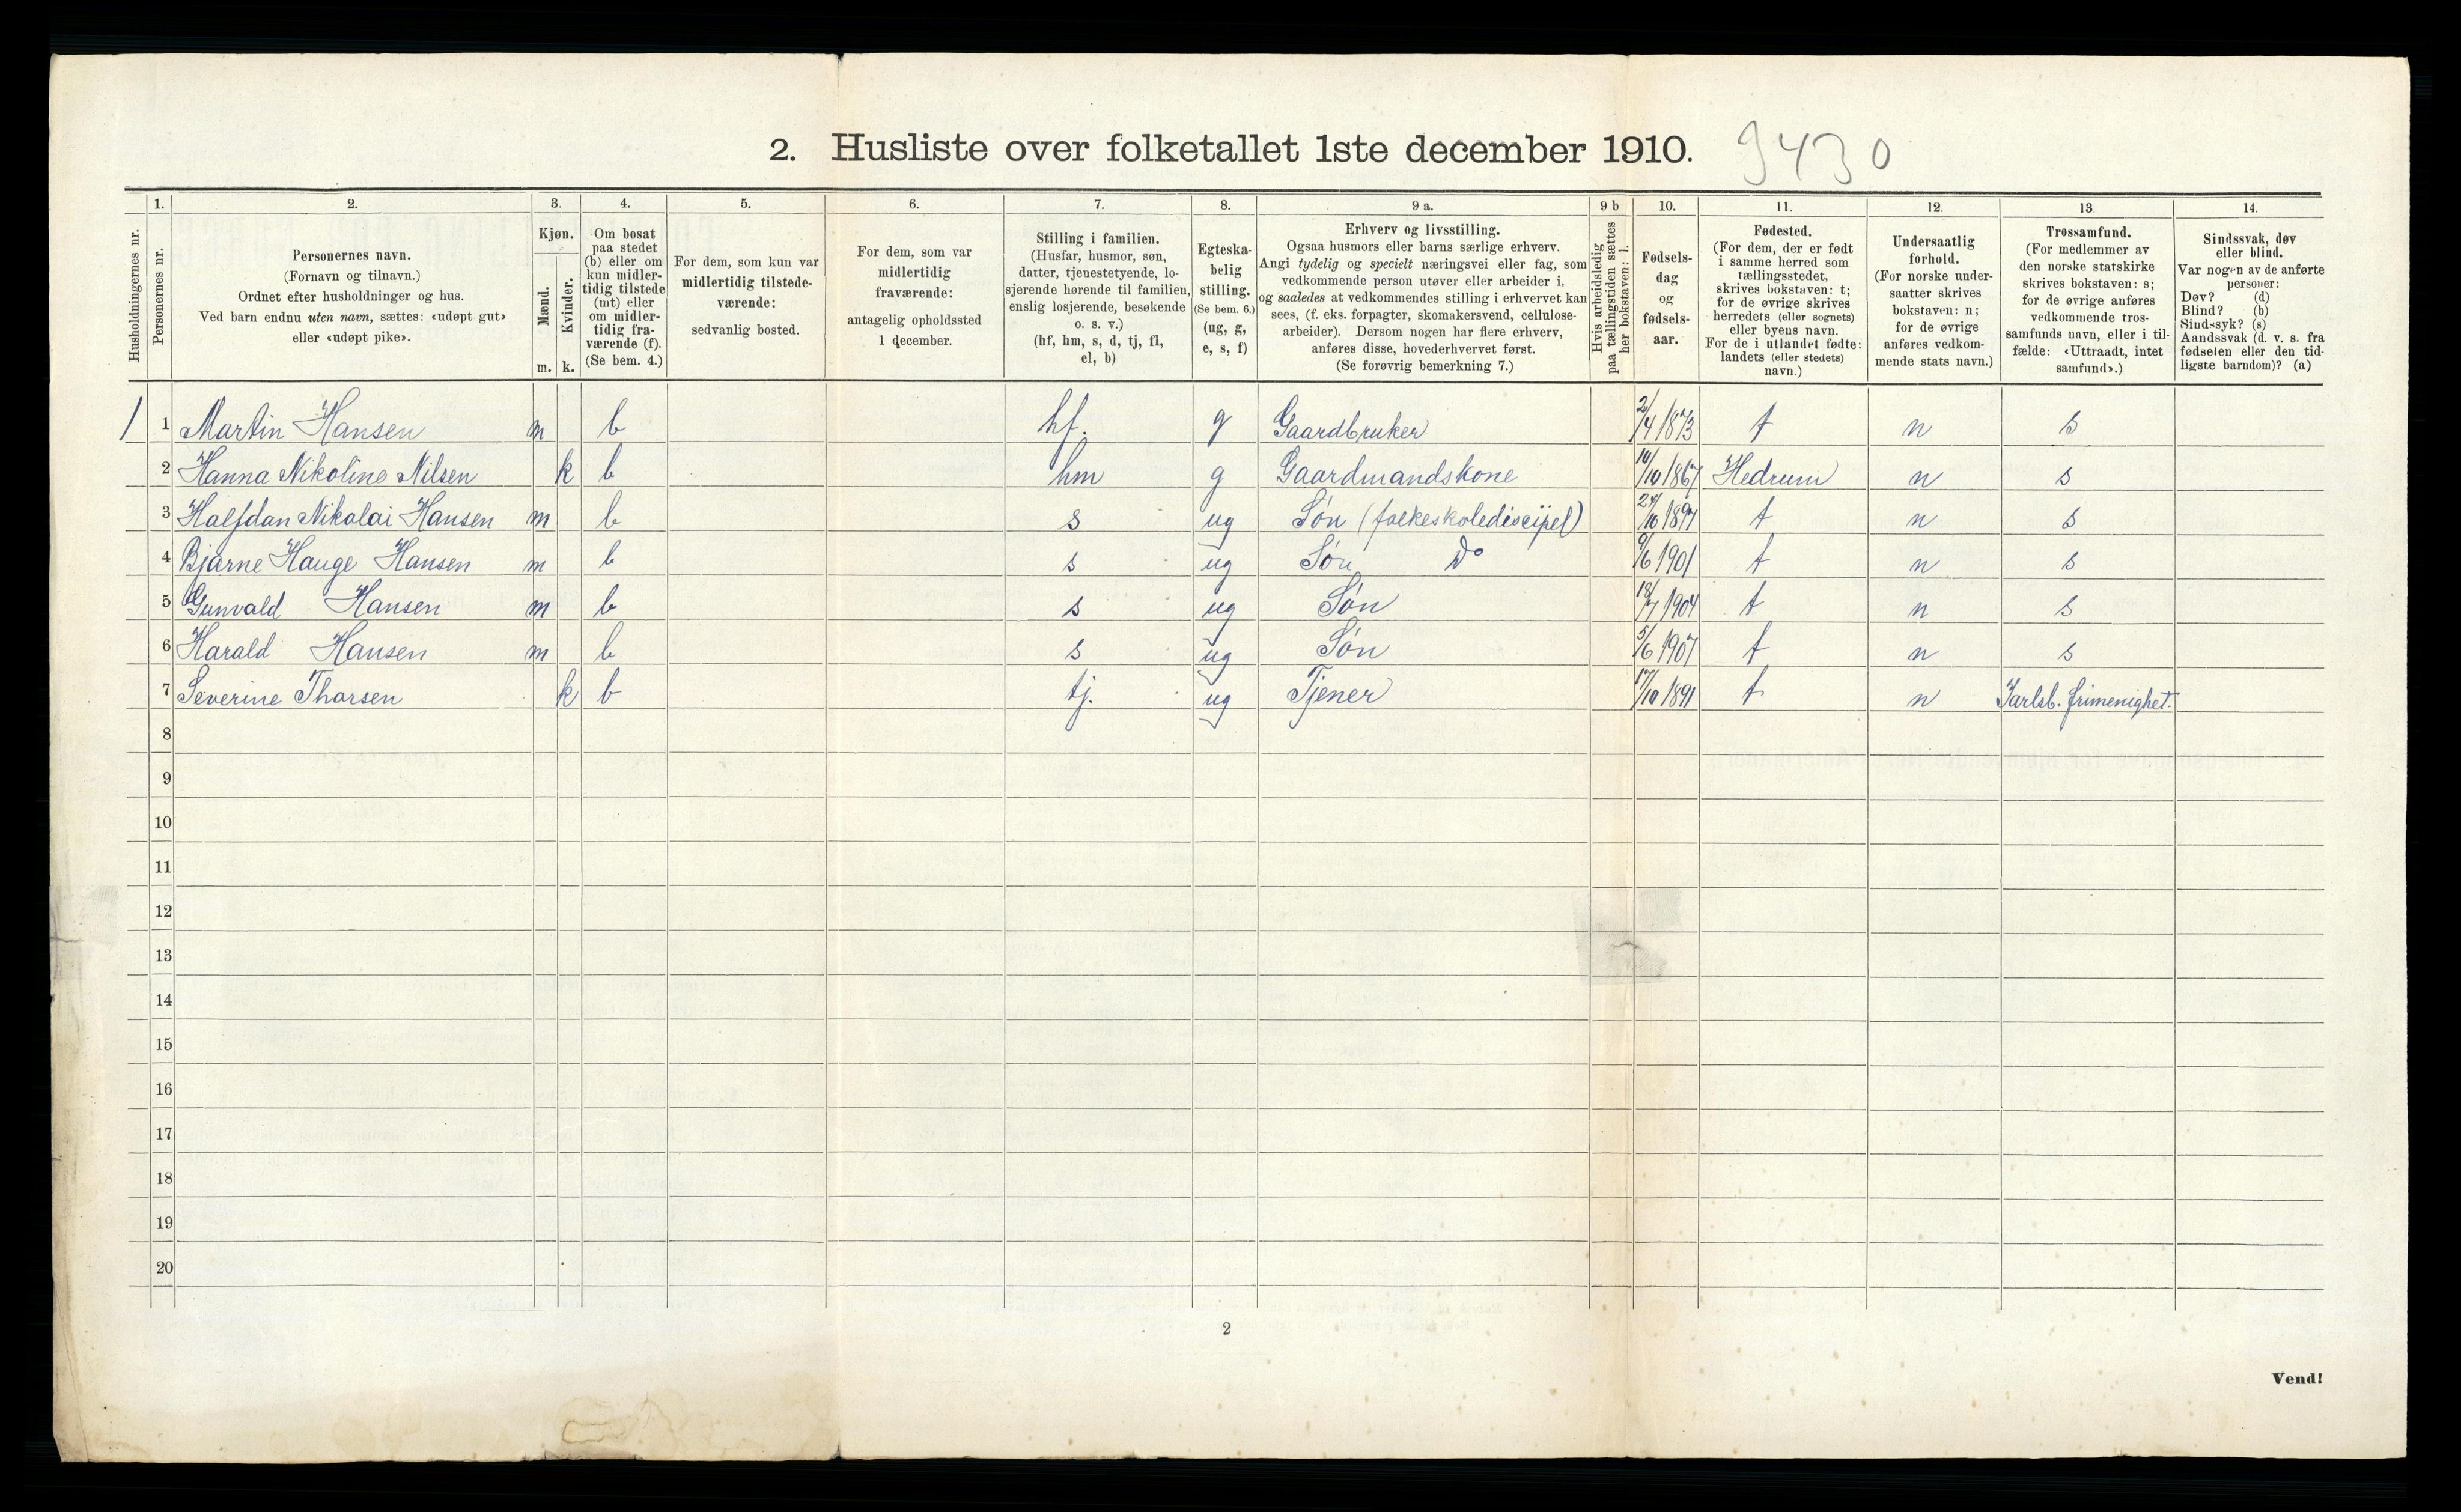 2. Husliste over folketallet 1ste december 1910. 9430
1. 2. 3. 4. 5. 6. 7. 8. 9 a. 9 b 10. 11. 12. 13. 14.
Husholdningernes nr.
Personernes nr.
Personernes navn.
(Fornavn og tilnavn.)
Ordnet efter husholdninger og hus.
Ved barn endnu uten navn, sættes: «udøpt gut»
eller «udøpt pike».
Kjøn.
Mænd.
Kvinder.
m. k.
Om bosat
paa stedet
(b) eller om
kun midler-
tidig tilstede
(mt) eller
om midler-
tidig fra-
værende (f).
(Se bem. 4.)
For dem, som kun var
midlertidig tilstede-
værende:
sedvanlig bosted.
For dem, som var
midlertidig
fraværende:
antagelig opholdssted
1 december.
Stilling i familien.
(Husfar, husmor, søn,
datter, tjenestetyende, lo-
sjerende hørende til familien,
enslig losjerende, besøkende
o. s. v.)
(hf, hm, s, d, tj, fl,
el, b)
Egteska-
belig
stilling.
(Se bem. 6.)
(ug, g,
e, s, f)
Erhverv og livsstilling.
Ogsaa husmors eller barns særlige erhverv.
Angi tydelig og specielt næringsvei eller fag, som
vedkommende person utøver eller arbeider i,
og saaledes at vedkommendes stilling i erhvervet kan
sees, (f. eks. forpagter, skomakersvend, cellulose-
arbeider). Dersom nogen har flere erhverv,
anføres disse, hovederhvervet først.
(Se forøvrig bemerkning 7.)
Hvis arbeidsledig
paa tællingstiden sættes
her bokstaven: l.
Fødsels-
dag
og
fødsels-
aar.
Fødested.
(For dem, der er født
i samme herred som
tællingsstedet,
skrives bokstaven: t;
for de øvrige skrives
herredets (eller sognets)
eller byens navn.
For de i utlandet fødte:
landets (eller stedets)
navn.)
Undersaatlig
forhold.
(For norske under-
saatter skrives
bokstaven: n;
for de øvrige
anføres vedkom-
mende stats navn.)
Trossamfund.
(For medlemmer av
den norske statskirke
skrives bokstaven: s;
for de øvrige anføres
vedkommende tros-
samfunds navn, eller i til-
fælde: «Uttraadt, intet
samfund».)
Sindssvak, døv
eller blind.
Var nogen av de anførte
personer:
Døv? (d)
Blind? (b)
Sindssyk? (s)
Aandssvak (d. v. s. fra
fødselen eller den tid-
ligste barndom)? (a)
1 1 Martin Hansen m b hf. g Gaardbruker 2/4 1873 t n s
2 Hanna Nikoline Nilsen k b hm g Gaardmandskone 10/10 1867 Hedrum n s
3 Halfdan Nikolai Hansen m b s ug Søn (folkeskolediscipel) 24/10 1897 t n s
4 Bjarne Hauge Hansen m b s ug Søn Do 9/6 1901 t n s
5 Gunvald Hansen m b s ug Søn 18/7 1904 t n s
6 Harald Hansen m b s ug Søn 5/6 1907 t n s
7 Severine Thorsen k b tj. ug Tjener 17/10 1891 t n Jarlsb. frimenighet.
8
9
10
11
12
13
14
15
16
17
18
19
20
2
Vend!